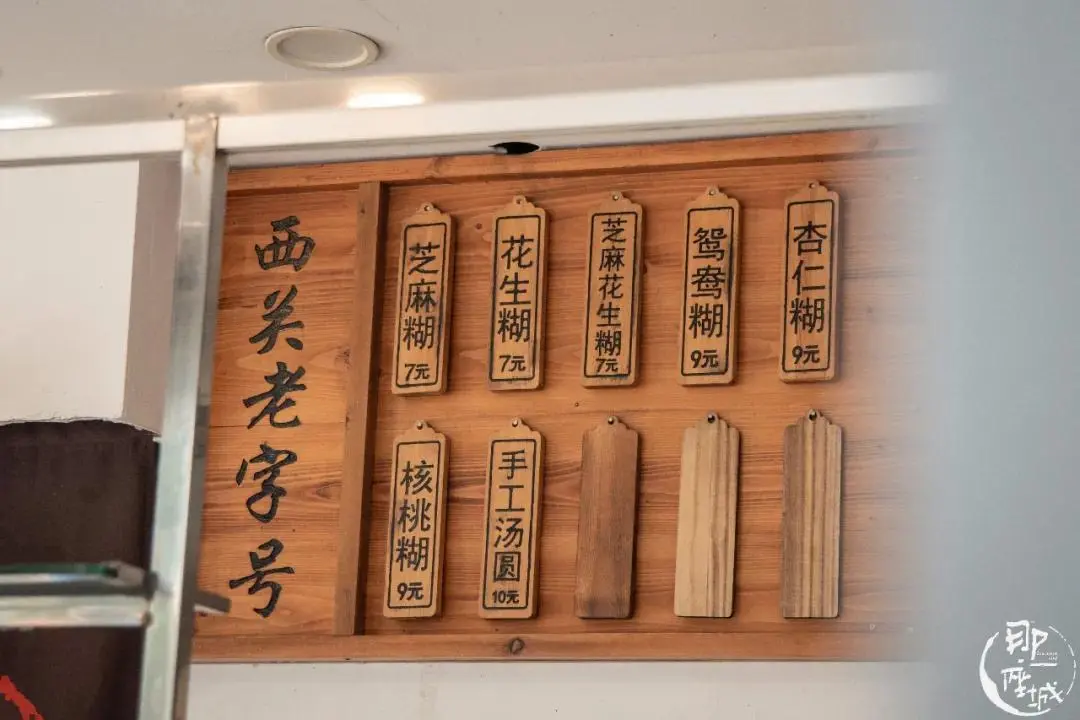 西关老字号
芝麻糊
7元
花生糊
7元
芝麻花生糊
7元
鸳鸯糊
9元
杏仁糊
9元
核桃糊
9元
手工汤圆
10元
那一座城